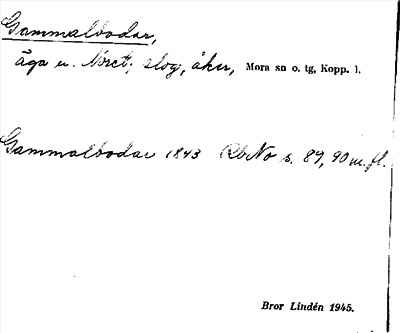 Gammalbodar,
äga u. Noret, slog, åker, Mora sn o. tg, Kopp. l.
Gammalbodar 1843 RbNo s. 89, 90 m. fl.
Bror Lindén 1945.